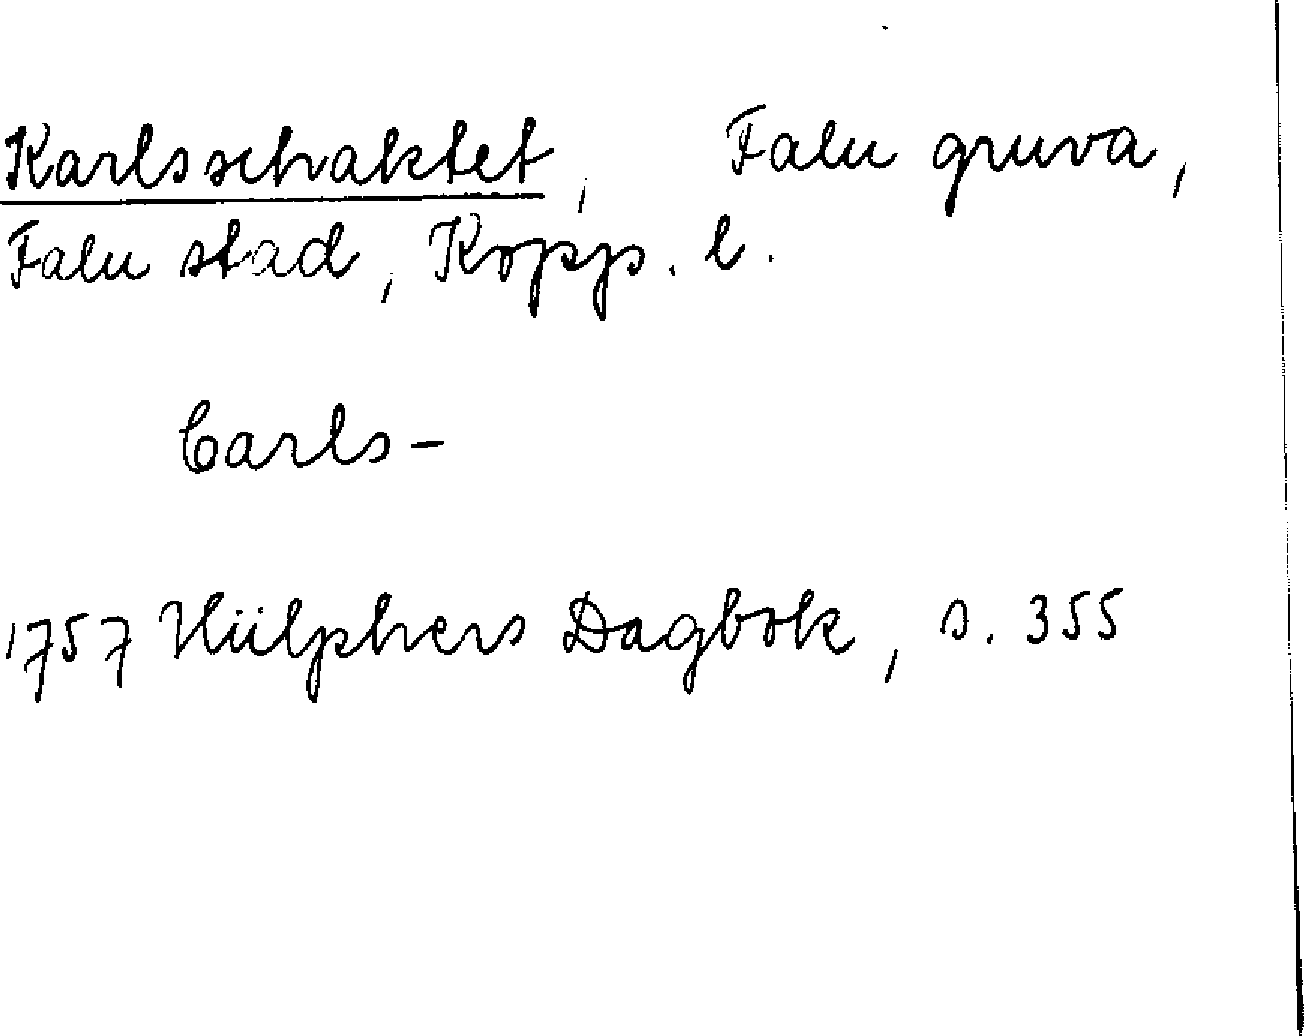 Karlsschaktet, Falu gruva,
Falu stad, Kopp. l.
Carls-
1757 Hülphers Dagbok, s. 355